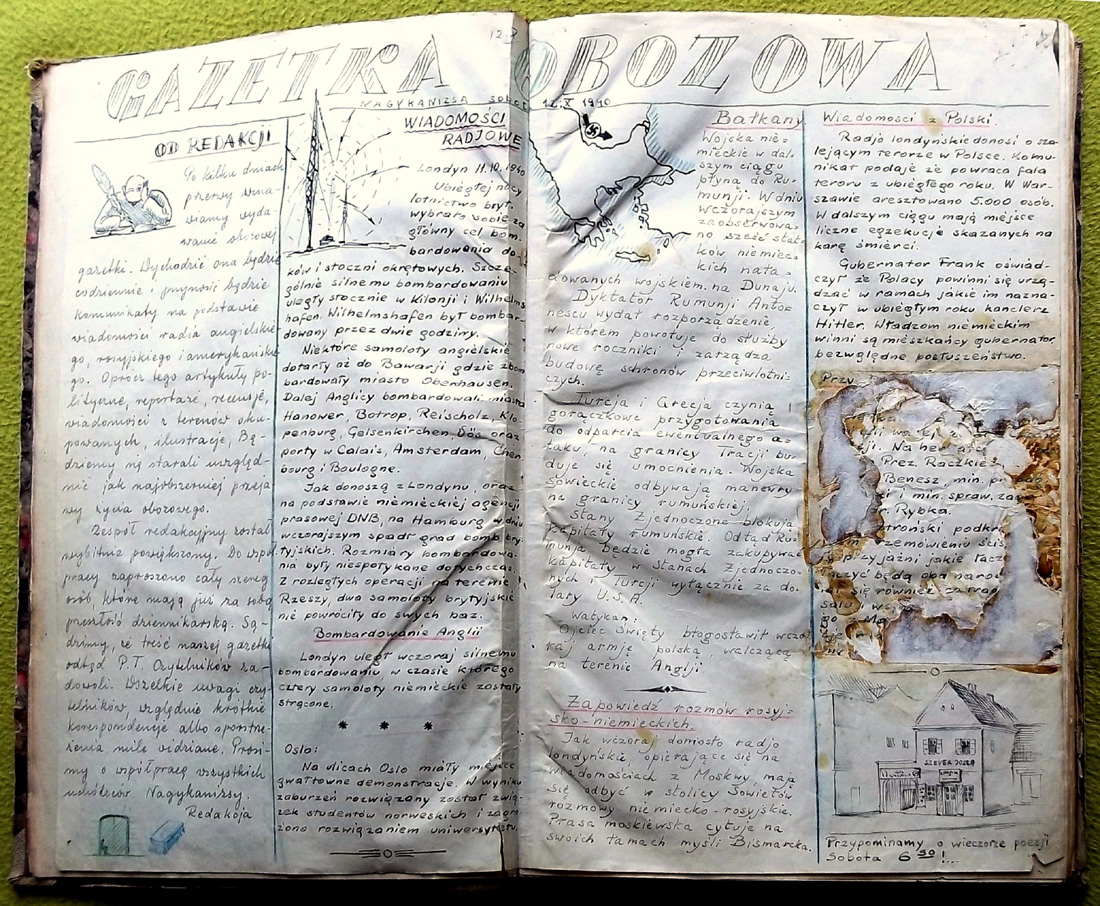 GAZETKA OBOZOWA
NAGYKANIZSA SOBOTA 12.X 1940
OD REDAKCJI
Po kilku dniach
przerwy wzna-
wiamy wyda-
wanie obozowej
gazetki. Wychodzić ona będzie
codziennie i przynosić będzie
komunikaty na podstawie
wiadomości radia angielskie-
go, rosyjskiego i amerykańskie
go. Oprócz tego artykuły po-
lityczne, reportaże, recenzje,
wiadomości z terenów oku-
powanych, ilustracje, Bę-
dziemy się starali uwzględ-
nić jak najobszerniej przeja
wy życia obozowego.
Zespół redakcyjny został
wybitnie powiększony. Do współ
pracy zaproszono cały szereg
osób, które mają już za sobą
przeszłość dziennikarską. Są-
dzimy, że treść naszej gazetki
odtąd P.T. Czytelników za-
dowoli. Wszelkie uwagi czy-
telników, względnie krótkie
korespondencje albo spostrze-
żenia mile widziane. Prosi-
my o współpracę wszystkich
uchodźców Nagykaniszy
Redakcja
WIADOMOŚCI
RADJOWE
Londyn 11.10.1940
Ubiegłej nocy
lotnictwo bryt.
wybrało sobie za
główny cel bom.
bardowania do-
ków i stoczni okrętowych. Szcze-
gólnie silnemu bombardowaniu
uległy stocznie w Kilonji i Wilhelms
hafen. Wilhelmshafen był bombar-
dowany przez dwie godziny.
Niektóre samoloty angielskie
dotarły aż do Bawarji gdzie zbom
bardowały miasto Oberhausen.
Dalej Anglicy bombardowali miasta
Hanower, Botrop, Reischolz, Klo-
penburg, Gelsenkirchen, oraz
porty w Calais, Amsterdam, Cher
bourg i Boulogne.
Jak donoszą z Londynu, oraz
na podstawie niemieckiej agencji
prasowej DNB, na Hamburg w dniu
wczorajszym spadł grad bomb bry
tyjskich. Rozmiary bombardowa-
nia były niespotykane dotychczas.
Z rozległych operacji na terenie
Rzeszy, dwa samoloty brytyjskie
nie powróciły do swych baz.
Bombardowanie Anglii
Londyn uległ wczoraj silnemu
bombardowaniu, w czasie którego
cztery samoloty niemieckie zostały
strącone.
* * *
Oslo:
Na ulicach Oslo miały miejsce
gwałtowne demonstracje. W wyniku
zaburzeń rozwiązany został zwią-
zek studentów norweskich i zagro
żono rozwiązaniem uniwersytetu.
Bałkany
Wojska nie-
mieckie w dal-
szym ciągu
płyną do Ru-
munji. W dniu
wczorajszym
zaobserwowa-
no sześć stat-
ków niemiec-
kich nała-
dowanych wojskiem na Dunaju.
Dyktator Rumunji Anto-
nescu wydał rozporządzenie
w którem powołuje do służby
nowe roczniki i zarządza
budowę schronów przeciwlotni-
czych.
Turcja i Grecja czynią
gorączkowe przygotowania
do odparcia ewentualnego a-
taku, na granicy Tracji bu-
duje się umocnienia. Wojska
sowieckie odbywają manewry
na granicy rumuńskiej.
Stany Zjednoczone blokują
kapitały rumuńskie. Odtąd Ru-
munja będzie mogła zakupywać
kapitały w Stanach Zjednoczo-
nych i Turcji wyłącznie za do-
lary U.S.A.
Watykan:
Ojciec Święty błogosławił wczo
raj armję polską, walczącą
na terenie Anglji.
Zapowiedź rozmów rosyj-
sko-niemieckich.
Jak wczoraj doniosło radjo
londyńskie, opierające się na
wiadomościach z Moskwy mają
się odbyć w stolicy Sowietów
rozmowy niemiecko-rosyjskie.
Prasa moskiewska cytuje na
swoich łamach myśli Bismarcka.
Wiadomości z Polski.
Radjo londyńskie donosi o sza-
lejącym terorze w Polsce. Komu-
nikat podaje że powraca fala
teroru z ubiegłego roku. W War-
szawie aresztowano 5.000 osób.
W dalszym ciągu mają miejsce
liczne egzekucje skazanych na
karę śmierci.
Gubernator Frank oświad-
czył że Polacy powinni się urzą-
dzać w ramach jakie im nazna-
czył w ubiegłym roku kanclerz
Hitler. Władzom niemieckim
winni są mieszkańcy gubernator.
bezwzględne posłuszeństwo.
Przy
Prez. Raczkie
Benesz, min.
i min. spraw. zag
r. Rybka.
podkre
przyjaźni jakie łącz
czyć będą oba naro
się również
SZEVER JOZSÓ
Przypominamy o wieczorze poezji
Sobota 6 30 !...